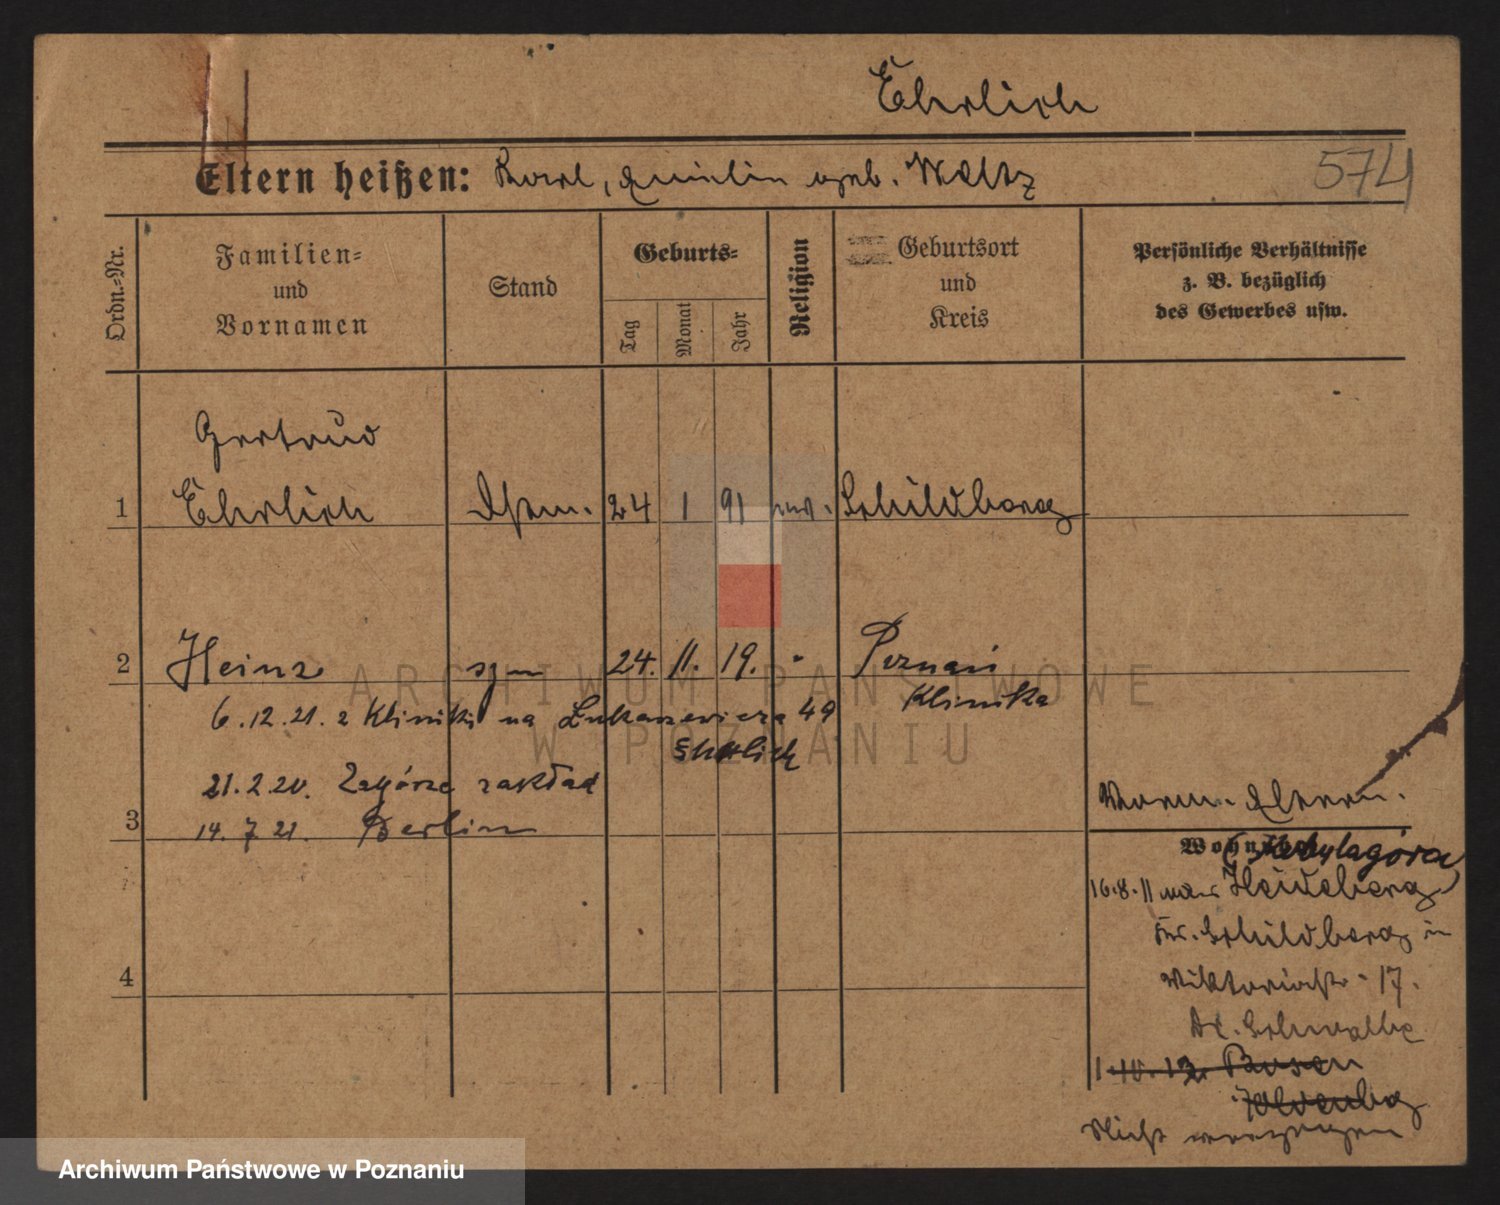 Ehrlich
Eltern heißen: Karl, geb. Waltz
574
Ordn.-Nr.
Familien-
und
Vornamen
Stand
Geburts-
Tag
Monat
Jahr
Religion
Geburtsort
und
Kreis
Persönliche Verhältnisse
z. B. bezüglich
des Gewerbes usw.
Gertrud
1 Ehrlich 24 1 91 Schildberg
2 Heinz syn 24. 11. 19. " Poznań
Klinika
6.12.21. z Kliniki na Łukaszewicza 49
Ehrlich
21.2.20. Zagórze zakład
3 14.7.21. Berlin
4
Vorm. Eltern.
Wohnung
(Kobylagóra)
16.8.11 aus Haideberg
Kr. Schildberg in
Viktoriastr. 17.
bei Schwalbe
1.10.12. Posen
Nicht
ARCHIWUM PAŃSTWOWE
W POZNANIU
Archiwum Państwowe w Poznaniu